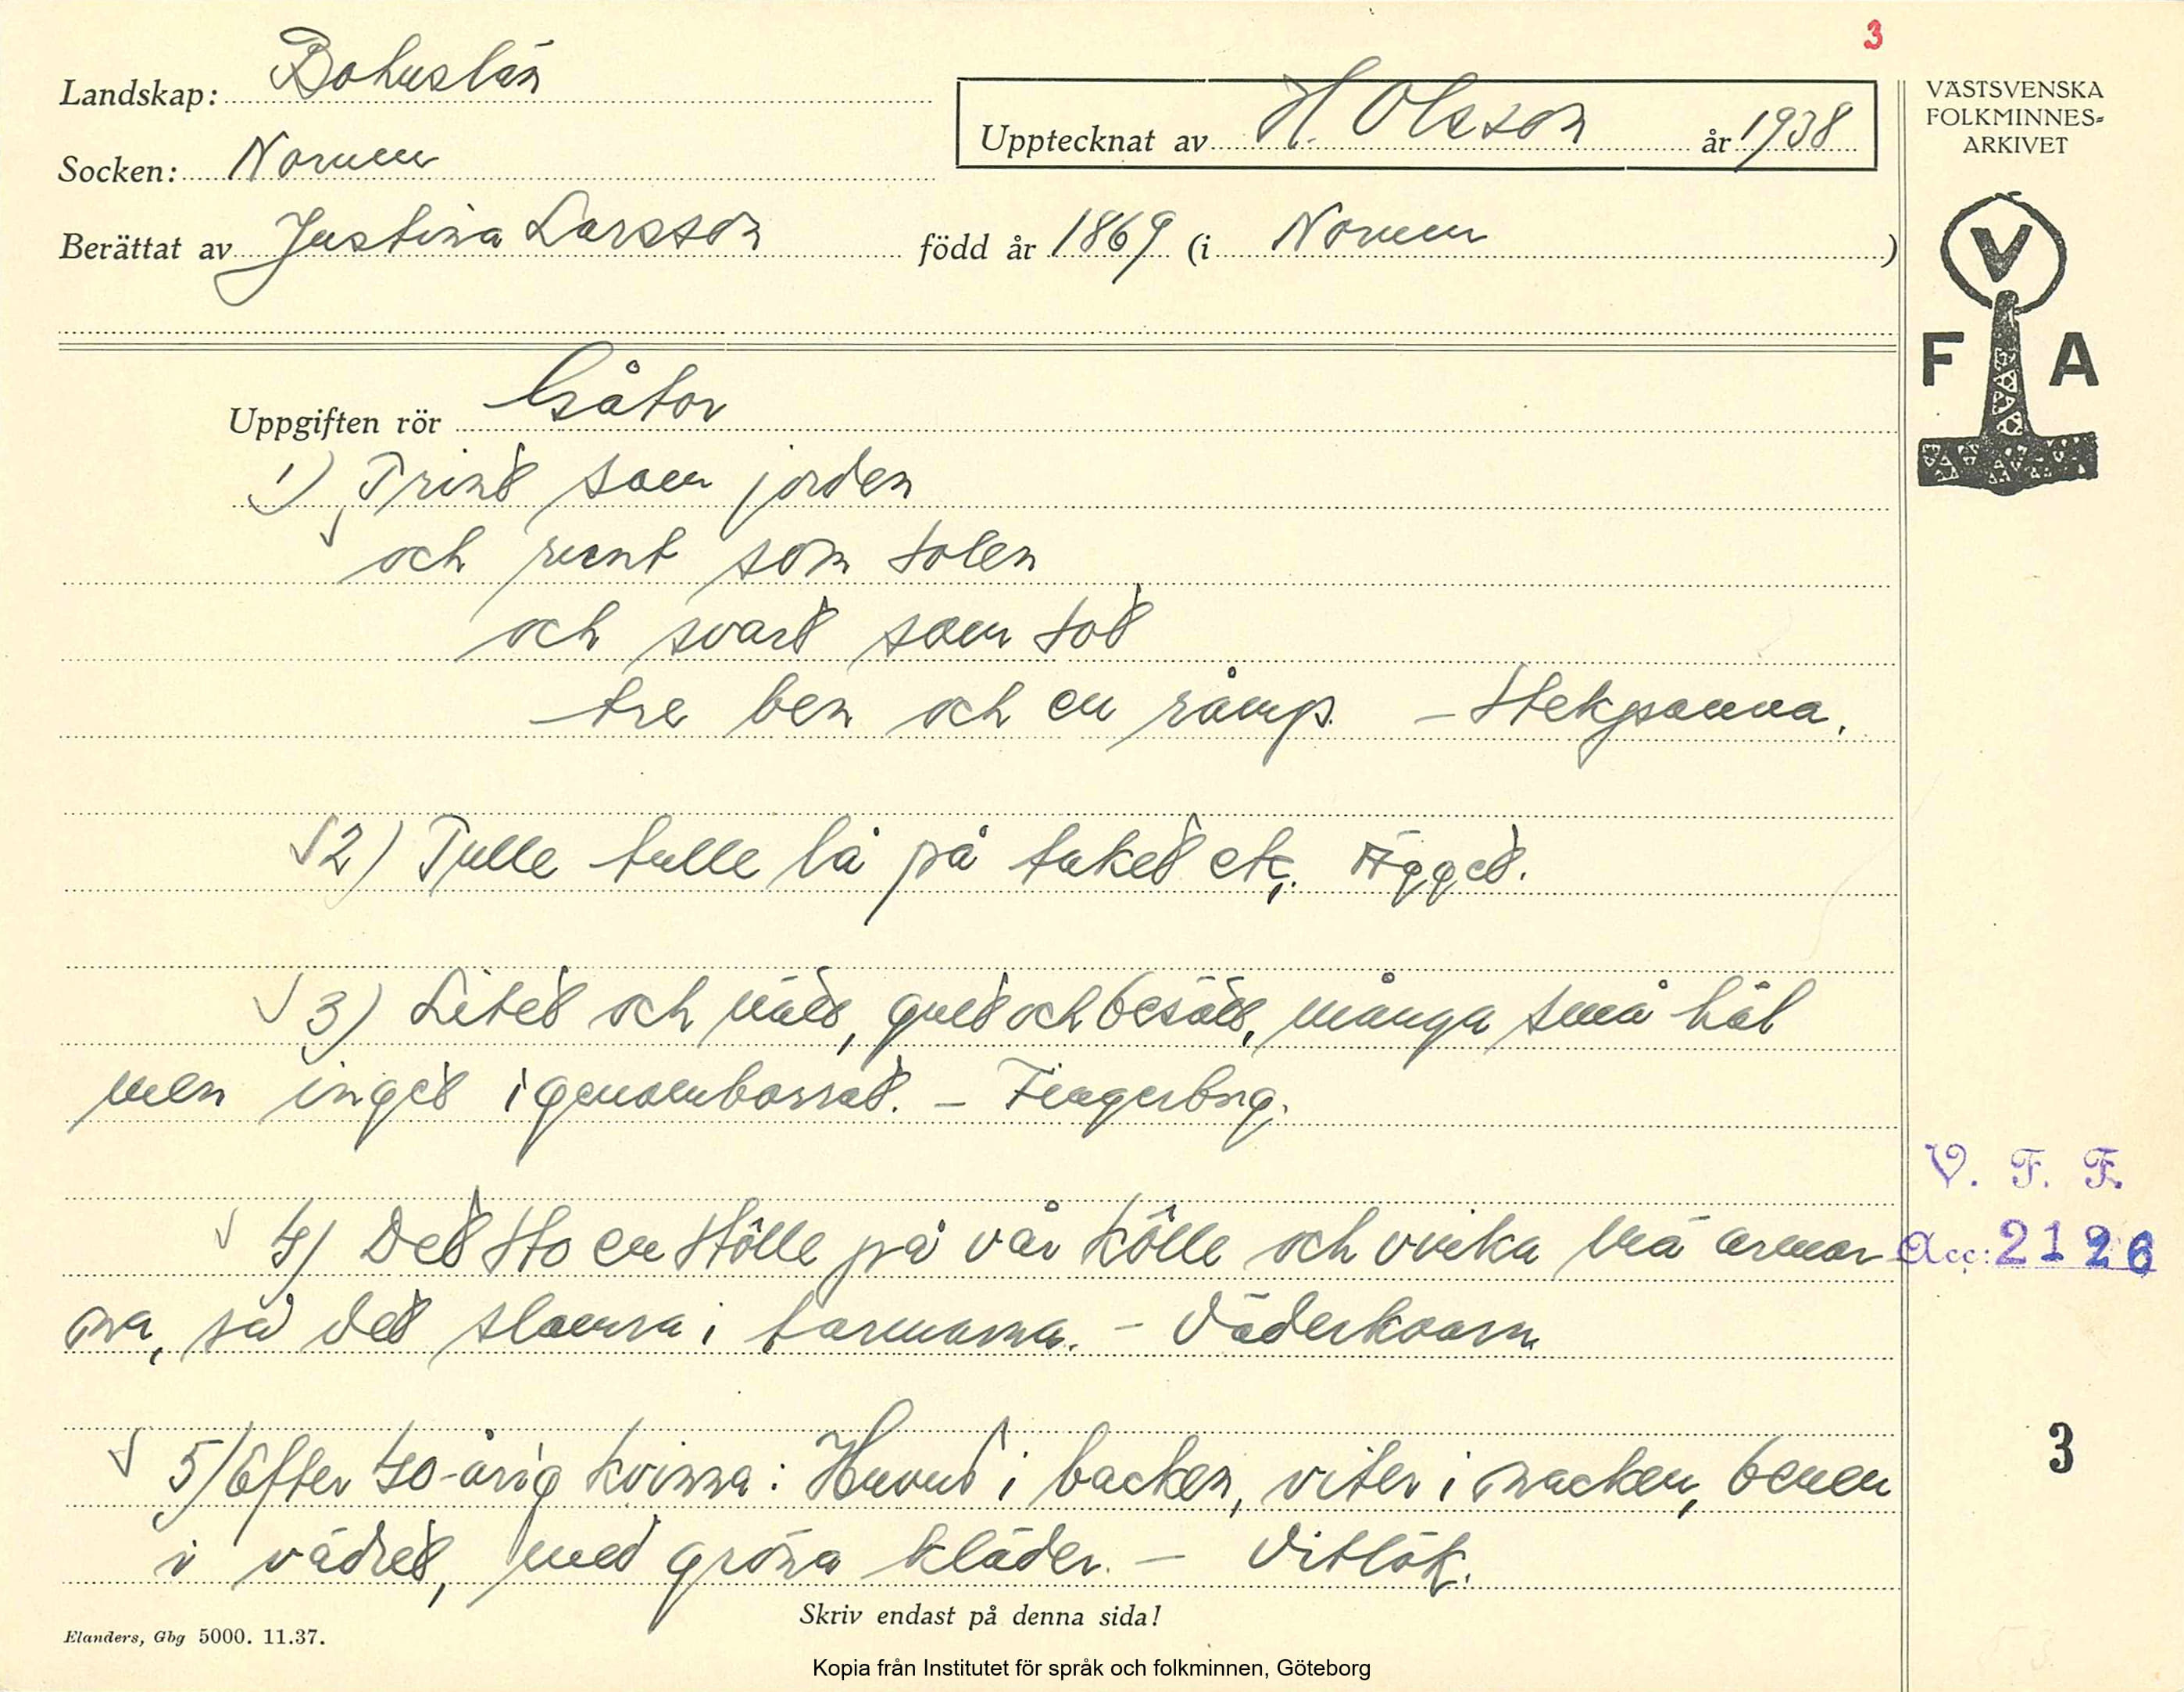 3
Landskap: Bohuslän
Upptecknat av H. Olsson år 1938
Socken: Norum
Berättat av Justina Larsson född år 1869 (i Norum )
VÄSTSVENSKA
FOLKMINNES-
ARKIVET
V
F A
Uppgiften rör Gåtor
1) Trint som jorden
och runt som solen
och svart som sot
tre ben och en rämp. – Stekpanna.
2) Tulle tulle lå på taket etc. Ägget.
3) Litet och nätt, gult och besätt, många små hål
men inget igenomborrat. – Fingerbrg.
4) Det sto en stölle på vår kölle och vinka mä armar
na, så det slamra i tarmarna. – Väderkvarn
V. F. F.
Acc: 2126
5) Efter 40-årig kvinna: Huvut i backen, viter i nacken, benen
i vädret, med gröna kläder. – Vitlök.
3
Skriv endast på denna sida!
Elanders, Gbg 5000. 11.37.
Kopia från Institutet för språk och folkminnen, Göteborg